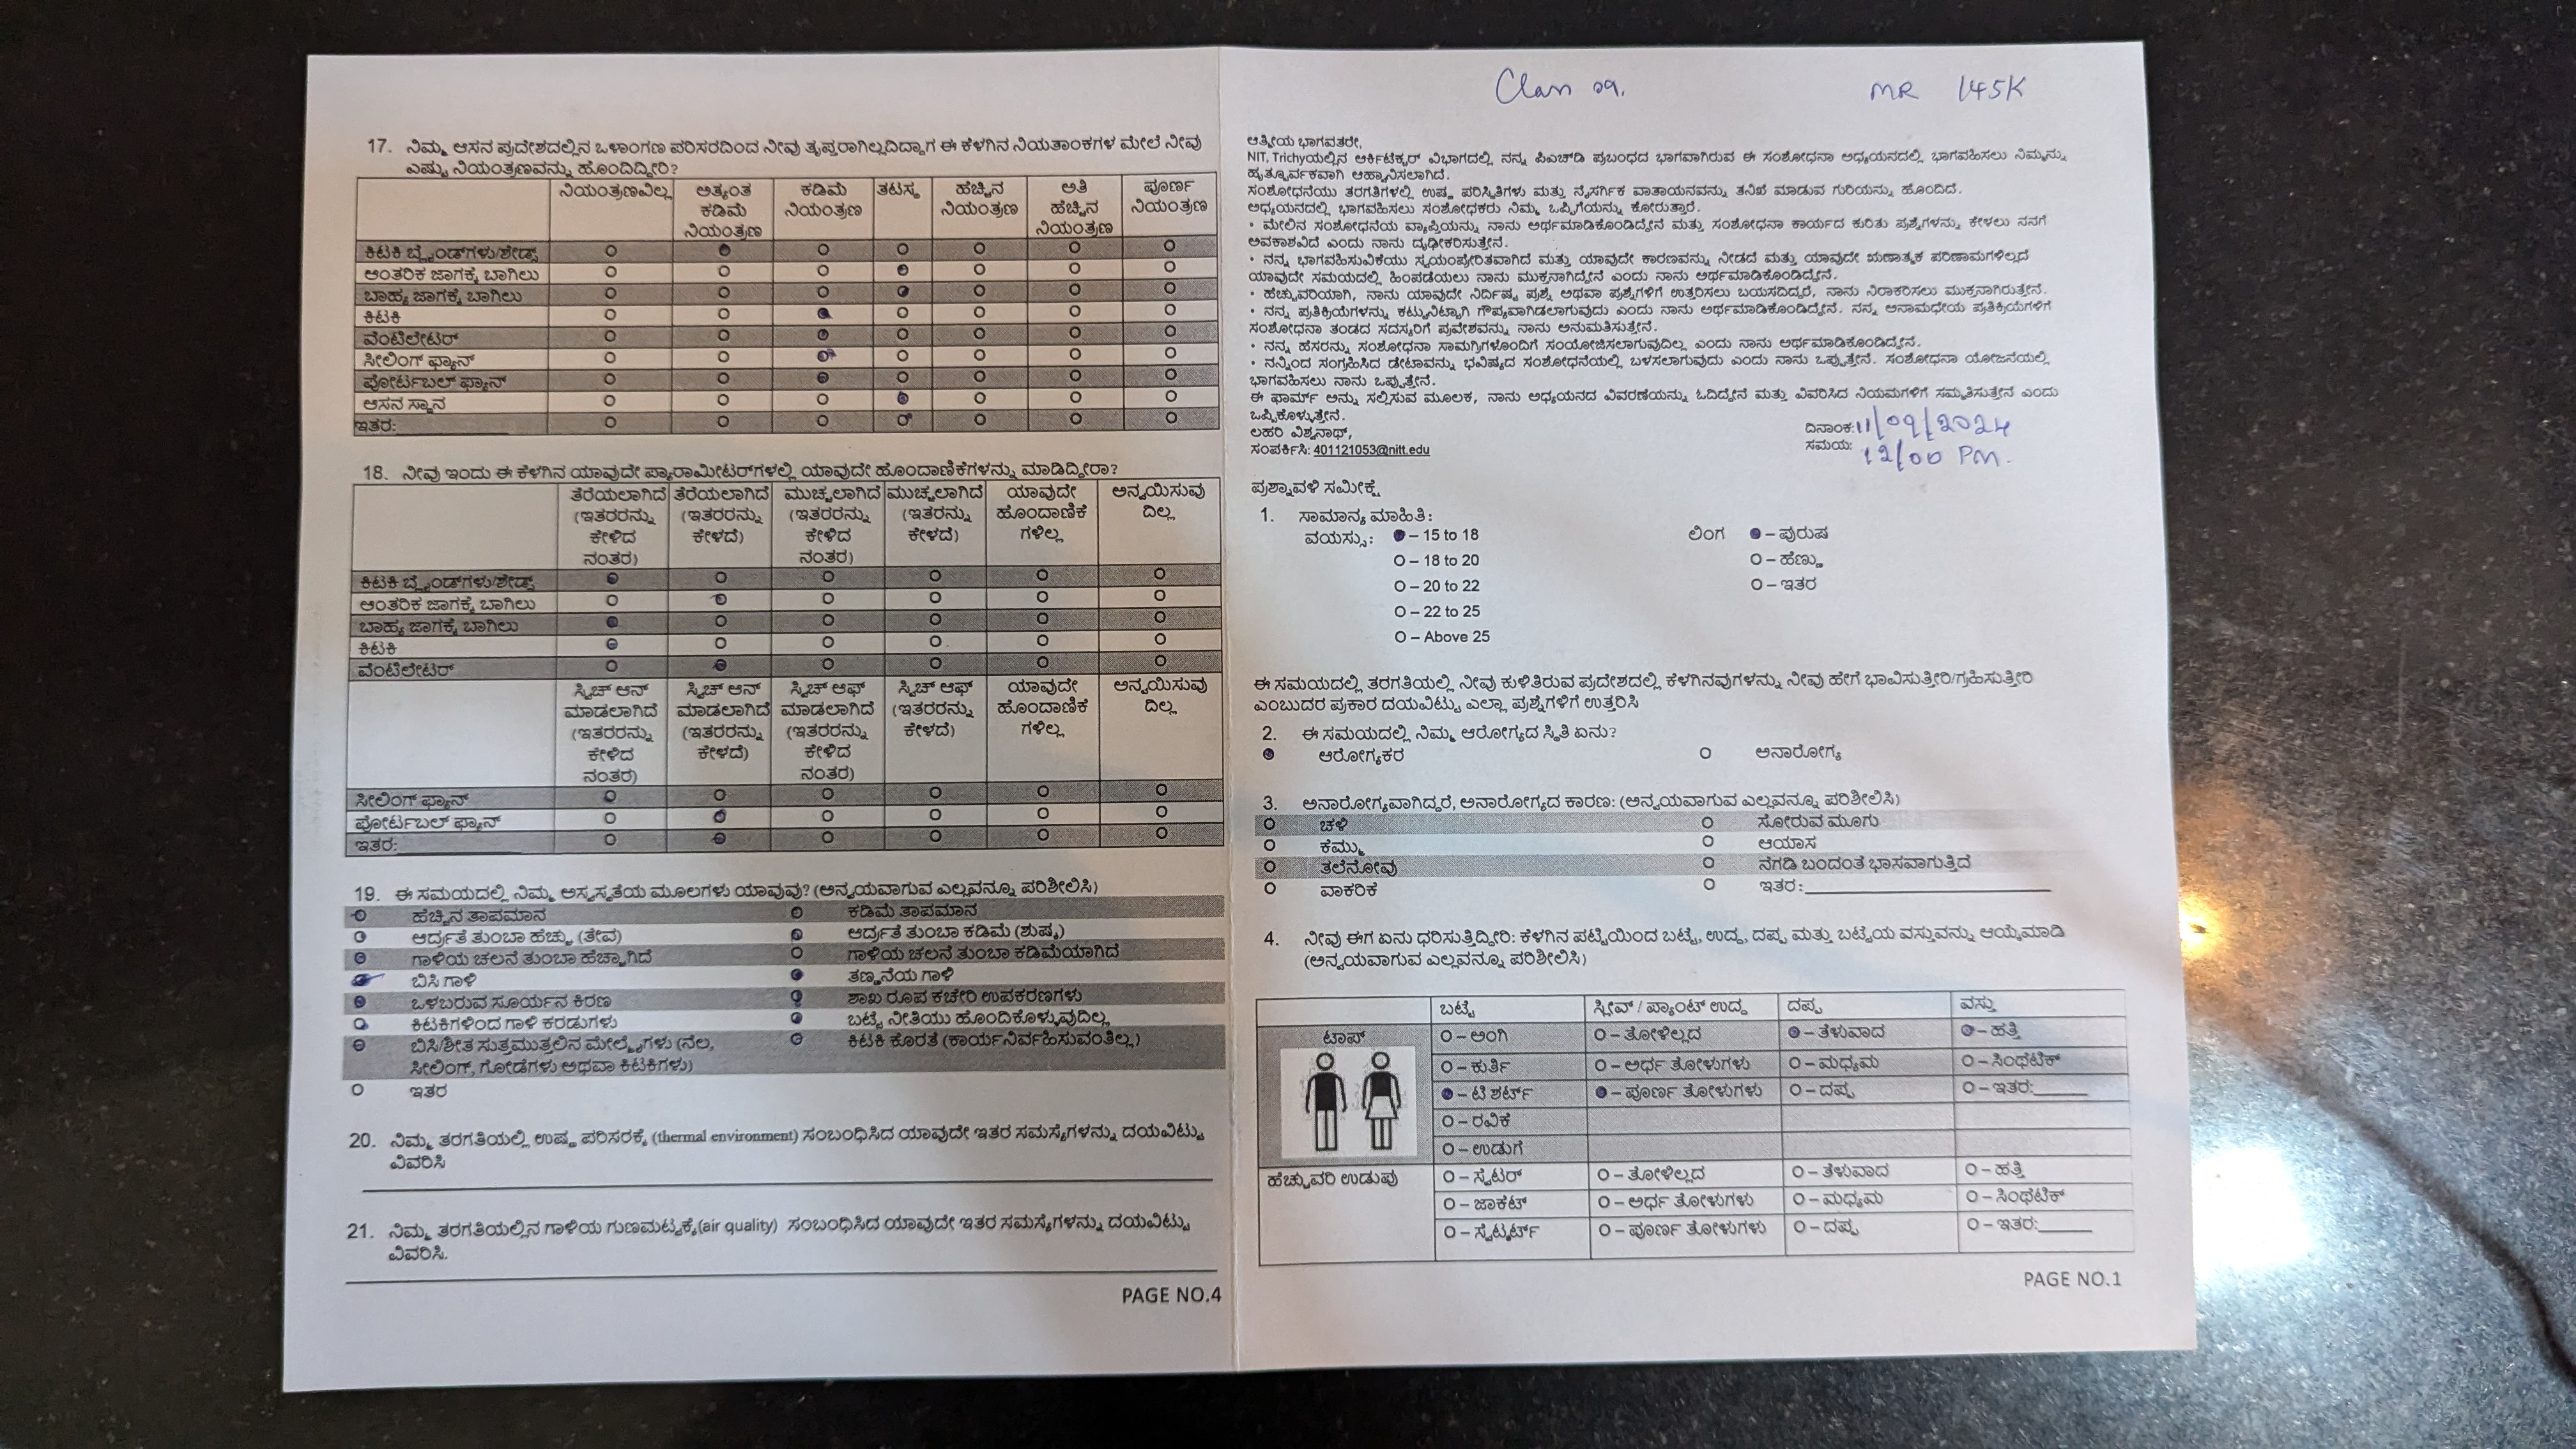 17. ನಿಮ್ಮ ಆಸನ ಪ್ರದೇಶದಲ್ಲಿನ ಒಳಾಂಗಣ ಪರಿಸರದಿಂದ ನೀವು ತೃಪ್ತರಾಗಿಲ್ಲದಿದ್ದಾಗ ಈ ಕೆಳಗಿನ ನಿಯತಾಂಕಗಳ ಮೇಲೆ ನೀವು
ಎಷ್ಟು ನಿಯಂತ್ರಣವನ್ನು ಹೊಂದಿದ್ದೀರಿ?
ನಿಯಂತ್ರಣವಿಲ್ಲ ಅತ್ಯಂತ ಕಡಿಮೆ ನಿಯಂತ್ರಣ ಕಡಿಮೆ ನಿಯಂತ್ರಣ ತಟಸ್ಥ ಹೆಚ್ಚಿನ ನಿಯಂತ್ರಣ ಅತಿ ಹೆಚ್ಚಿನ ನಿಯಂತ್ರಣ ಪೂರ್ಣ ನಿಯಂತ್ರಣ
ಕಿಟಕಿ ಬ್ಲೈಂಡ್‌ಗಳು/ಶೇಡ್ಸ್
ಆಂತರಿಕ ಜಾಗಕ್ಕೆ ಬಾಗಿಲು
ಬಾಹ್ಯ ಜಾಗಕ್ಕೆ ಬಾಗಿಲು
ಕಿಟಕಿ
ವೆಂಟಿಲೇಟರ್
ಸೀಲಿಂಗ್ ಫ್ಯಾನ್
ಪೋರ್ಟಬಲ್ ಫ್ಯಾನ್
ಆಸನ ಸ್ಥಾನ
ಇತರ:
18. ನೀವು ಇಂದು ಈ ಕೆಳಗಿನ ಯಾವುದೇ ಪ್ಯಾರಾಮೀಟರ್‌ಗಳಲ್ಲಿ ಯಾವುದೇ ಹೊಂದಾಣಿಕೆಗಳನ್ನು ಮಾಡಿದ್ದೀರಾ?
ತೆರೆಯಲಾಗಿದೆ (ಇತರರನ್ನು ಕೇಳಿದ ನಂತರ) ತೆರೆಯಲಾಗಿದೆ (ಇತರರನ್ನು ಕೇಳದೆ) ಮುಚ್ಚಲಾಗಿದೆ (ಇತರರನ್ನು ಕೇಳಿದ ನಂತರ) ಮುಚ್ಚಲಾಗಿದೆ (ಇತರರನ್ನು ಕೇಳದೆ) ಯಾವುದೇ ಹೊಂದಾಣಿಕೆಗಳಿಲ್ಲ ಅನ್ವಯಿಸುವುದಿಲ್ಲ
ಕಿಟಕಿ ಬ್ಲೈಂಡ್‌ಗಳು/ಶೇಡ್ಸ್
ಆಂತರಿಕ ಜಾಗಕ್ಕೆ ಬಾಗಿಲು
ಬಾಹ್ಯ ಜಾಗಕ್ಕೆ ಬಾಗಿಲು
ಕಿಟಕಿ
ವೆಂಟಿಲೇಟರ್
ಸ್ವಿಚ್ ಆನ್ ಮಾಡಲಾಗಿದೆ (ಇತರರನ್ನು ಕೇಳಿದ ನಂತರ) ಸ್ವಿಚ್ ಆನ್ ಮಾಡಲಾಗಿದೆ (ಇತರರನ್ನು ಕೇಳದೆ) ಸ್ವಿಚ್ ಆಫ್ ಮಾಡಲಾಗಿದೆ (ಇತರರನ್ನು ಕೇಳಿದ ನಂತರ) ಸ್ವಿಚ್ ಆಫ್ (ಇತರರನ್ನು ಕೇಳದೆ) ಯಾವುದೇ ಹೊಂದಾಣಿಕೆಗಳಿಲ್ಲ ಅನ್ವಯಿಸುವುದಿಲ್ಲ
ಸೀಲಿಂಗ್ ಫ್ಯಾನ್
ಪೋರ್ಟಬಲ್ ಫ್ಯಾನ್
ಇತರ:
19. ಈ ಸಮಯದಲ್ಲಿ ನಿಮ್ಮ ಅಸ್ವಸ್ಥತೆಯ ಮೂಲಗಳು ಯಾವುವು? (ಅನ್ವಯವಾಗುವ ಎಲ್ಲವನ್ನೂ ಪರಿಶೀಲಿಸಿ)
ಹೆಚ್ಚಿನ ತಾಪಮಾನ ಕಡಿಮೆ ತಾಪಮಾನ
ಆರ್ದ್ರತೆ ತುಂಬಾ ಹೆಚ್ಚು (ತೇವ) ಆರ್ದ್ರತೆ ತುಂಬಾ ಕಡಿಮೆ (ಶುಷ್ಕ)
ಗಾಳಿಯ ಚಲನೆ ತುಂಬಾ ಹೆಚ್ಚಾಗಿದೆ ಗಾಳಿಯ ಚಲನೆ ತುಂಬಾ ಕಡಿಮೆಯಾಗಿದೆ
ಬಿಸಿ ಗಾಳಿ ತಣ್ಣನೆಯ ಗಾಳಿ
ಒಳಬರುವ ಸೂರ್ಯನ ಕಿರಣ ಶಾಖ ರೂಪ ಕಚೇರಿ ಉಪಕರಣಗಳು
ಕಿಟಕಿಗಳಿಂದ ಗಾಳಿ ಕರಡುಗಳು ಬಟ್ಟೆ ನೀತಿಯು ಹೊಂದಿಕೊಳ್ಳುವುದಿಲ್ಲ
ಬಿಸಿ/ಶೀತ ಸುತ್ತಮುತ್ತಲಿನ ಮೇಲ್ಮೈಗಳು (ನೆಲ, ಕಿಟಕಿ ಕೊರತೆ (ಕಾರ್ಯನಿರ್ವಹಿಸುವಂತಿಲ್ಲ)
ಸೀಲಿಂಗ್, ಗೋಡೆಗಳು ಅಥವಾ ಕಿಟಕಿಗಳು)
ಇತರ
20. ನಿಮ್ಮ ತರಗತಿಯಲ್ಲಿ ಉಷ್ಣ ಪರಿಸರಕ್ಕೆ (thermal environment) ಸಂಬಂಧಿಸಿದ ಯಾವುದೇ ಇತರ ಸಮಸ್ಯೆಗಳನ್ನು ದಯವಿಟ್ಟು
ವಿವರಿಸಿ
21. ನಿಮ್ಮ ತರಗತಿಯಲ್ಲಿನ ಗಾಳಿಯ ಗುಣಮಟ್ಟಕ್ಕೆ(air quality) ಸಂಬಂಧಿಸಿದ ಯಾವುದೇ ಇತರ ಸಮಸ್ಯೆಗಳನ್ನು ದಯವಿಟ್ಟು
ವಿವರಿಸಿ.
PAGE NO.4
Class 09. MR 145K
ಆತ್ಮೀಯ ಭಾಗವತರೇ,
NIT, Trichyಯಲ್ಲಿನ ಆರ್ಕಿಟೆಕ್ಚರ್ ವಿಭಾಗದಲ್ಲಿ ನನ್ನ ಪಿಎಚ್‌ಡಿ ಪ್ರಬಂಧದ ಭಾಗವಾಗಿರುವ ಈ ಸಂಶೋಧನಾ ಅಧ್ಯಯನದಲ್ಲಿ ಭಾಗವಹಿಸಲು ನಿಮ್ಮನ್ನು
ಹೃತ್ಪೂರ್ವಕವಾಗಿ ಆಹ್ವಾನಿಸಲಾಗಿದೆ.
ಸಂಶೋಧನೆಯು ತರಗತಿಗಳಲ್ಲಿ ಉಷ್ಣ ಪರಿಸ್ಥಿತಿಗಳು ಮತ್ತು ನೈಸರ್ಗಿಕ ವಾತಾಯನವನ್ನು ತನಿಖೆ ಮಾಡುವ ಗುರಿಯನ್ನು ಹೊಂದಿದೆ.
ಅಧ್ಯಯನದಲ್ಲಿ ಭಾಗವಹಿಸಲು ಸಂಶೋಧಕರು ನಿಮ್ಮ ಒಪ್ಪಿಗೆಯನ್ನು ಕೋರುತ್ತಾರೆ.
• ಮೇಲಿನ ಸಂಶೋಧನೆಯ ವ್ಯಾಪ್ತಿಯನ್ನು ನಾನು ಅರ್ಥಮಾಡಿಕೊಂಡಿದ್ದೇನೆ ಮತ್ತು ಸಂಶೋಧನಾ ಕಾರ್ಯದ ಕುರಿತು ಪ್ರಶ್ನೆಗಳನ್ನು ಕೇಳಲು ನನಗೆ
ಅವಕಾಶವಿದೆ ಎಂದು ನಾನು ದೃಢೀಕರಿಸುತ್ತೇನೆ.
• ನನ್ನ ಭಾಗವಹಿಸುವಿಕೆಯು ಸ್ವಯಂಪ್ರೇರಿತವಾಗಿದೆ ಮತ್ತು ಯಾವುದೇ ಕಾರಣವನ್ನು ನೀಡದೆ ಮತ್ತು ಯಾವುದೇ ಋಣಾತ್ಮಕ ಪರಿಣಾಮಗಳಿಲ್ಲದೆ
ಯಾವುದೇ ಸಮಯದಲ್ಲಿ ಹಿಂಪಡೆಯಲು ನಾನು ಮುಕ್ತನಾಗಿದ್ದೇನೆ ಎಂದು ನಾನು ಅರ್ಥಮಾಡಿಕೊಂಡಿದ್ದೇನೆ.
• ಹೆಚ್ಚುವರಿಯಾಗಿ, ನಾನು ಯಾವುದೇ ನಿರ್ದಿಷ್ಟ ಪ್ರಶ್ನೆ ಅಥವಾ ಪ್ರಶ್ನೆಗಳಿಗೆ ಉತ್ತರಿಸಲು ಬಯಸದಿದ್ದರೆ, ನಾನು ನಿರಾಕರಿಸಲು ಮುಕ್ತನಾಗಿರುತ್ತೇನೆ.
• ನನ್ನ ಪ್ರತಿಕ್ರಿಯೆಗಳನ್ನು ಕಟ್ಟುನಿಟ್ಟಾಗಿ ಗೌಪ್ಯವಾಗಿಡಲಾಗುವುದು ಎಂದು ನಾನು ಅರ್ಥಮಾಡಿಕೊಂಡಿದ್ದೇನೆ. ನನ್ನ ಅನಾಮಧೇಯ ಪ್ರತಿಕ್ರಿಯೆಗಳಿಗೆ
ಸಂಶೋಧನಾ ತಂಡದ ಸದಸ್ಯರಿಗೆ ಪ್ರವೇಶವನ್ನು ನಾನು ಅನುಮತಿಸುತ್ತೇನೆ.
• ನನ್ನ ಹೆಸರನ್ನು ಸಂಶೋಧನಾ ಸಾಮಗ್ರಿಗಳೊಂದಿಗೆ ಸಂಯೋಜಿಸಲಾಗುವುದಿಲ್ಲ ಎಂದು ನಾನು ಅರ್ಥಮಾಡಿಕೊಂಡಿದ್ದೇನೆ.
• ನನ್ನಿಂದ ಸಂಗ್ರಹಿಸಿದ ಡೇಟಾವನ್ನು ಭವಿಷ್ಯದ ಸಂಶೋಧನೆಯಲ್ಲಿ ಬಳಸಲಾಗುವುದು ಎಂದು ನಾನು ಒಪ್ಪುತ್ತೇನೆ. ಸಂಶೋಧನಾ ಯೋಜನೆಯಲ್ಲಿ
ಭಾಗವಹಿಸಲು ನಾನು ಒಪ್ಪುತ್ತೇನೆ.
ಈ ಫಾರ್ಮ್ ಅನ್ನು ಸಲ್ಲಿಸುವ ಮೂಲಕ, ನಾನು ಅಧ್ಯಯನದ ವಿವರಣೆಯನ್ನು ಓದಿದ್ದೇನೆ ಮತ್ತು ವಿವರಿಸಿದ ನಿಯಮಗಳಿಗೆ ಸಮ್ಮತಿಸುತ್ತೇನೆ ಎಂದು
ಒಪ್ಪಿಕೊಳ್ಳುತ್ತೇನೆ.
ಲಹರಿ ವಿಶ್ವನಾಥ್, ದಿನಾಂಕ:11/09/2024
ಸಂಪರ್ಕಿಸಿ: 401121053@nitt.edu ಸಮಯ: 12/00 PM.
ಪ್ರಶ್ನಾವಳಿ ಸಮೀಕ್ಷೆ
1. ಸಾಮಾನ್ಯ ಮಾಹಿತಿ:
ವಯಸ್ಸು: – 15 to 18 ಲಿಂಗ – ಪುರುಷ
O – 18 to 20 O – ಹೆಣ್ಣು
O – 20 to 22 O – ಇತರ
O – 22 to 25
O – Above 25
ಈ ಸಮಯದಲ್ಲಿ ತರಗತಿಯಲ್ಲಿ ನೀವು ಕುಳಿತಿರುವ ಪ್ರದೇಶದಲ್ಲಿ ಕೆಳಗಿನವುಗಳನ್ನು ನೀವು ಹೇಗೆ ಭಾವಿಸುತ್ತೀರಿ/ಗ್ರಹಿಸುತ್ತೀರಿ
ಎಂಬುದರ ಪ್ರಕಾರ ದಯವಿಟ್ಟು ಎಲ್ಲಾ ಪ್ರಶ್ನೆಗಳಿಗೆ ಉತ್ತರಿಸಿ
2. ಈ ಸಮಯದಲ್ಲಿ ನಿಮ್ಮ ಆರೋಗ್ಯದ ಸ್ಥಿತಿ ಏನು?
ಆರೋಗ್ಯಕರ O ಅನಾರೋಗ್ಯ
3. ಅನಾರೋಗ್ಯವಾಗಿದ್ದರೆ, ಅನಾರೋಗ್ಯದ ಕಾರಣ: (ಅನ್ವಯವಾಗುವ ಎಲ್ಲವನ್ನೂ ಪರಿಶೀಲಿಸಿ)
O ಚಳಿ O ಸೋರುವ ಮೂಗು
O ಕೆಮ್ಮು O ಆಯಾಸ
O ತಲೆನೋವು O ನೆಗಡಿ ಬಂದಂತೆ ಭಾಸವಾಗುತ್ತಿದೆ
O ವಾಕರಿಕೆ O ಇತರ:
4. ನೀವು ಈಗ ಏನು ಧರಿಸುತ್ತಿದ್ದೀರಿ: ಕೆಳಗಿನ ಪಟ್ಟಿಯಿಂದ ಬಟ್ಟೆ, ಉದ್ದ, ದಪ್ಪ ಮತ್ತು ಬಟ್ಟೆಯ ವಸ್ತುವನ್ನು ಆಯ್ಕೆಮಾಡಿ
(ಅನ್ವಯವಾಗುವ ಎಲ್ಲವನ್ನೂ ಪರಿಶೀಲಿಸಿ)
ಬಟ್ಟೆ ಸ್ಲೀವ್ / ಪ್ಯಾಂಟ್ ಉದ್ದ ದಪ್ಪ ವಸ್ತು
ಟಾಪ್ O – ಅಂಗಿ O – ತೋಳಿಲ್ಲದ – ತೆಳುವಾದ – ಹತ್ತಿ
O – ಕುರ್ತಿ O – ಅರ್ಧ ತೋಳುಗಳು O – ಮಧ್ಯಮ O – ಸಿಂಥೆಟಿಕ್
– ಟಿ ಶರ್ಟ್ – ಪೂರ್ಣ ತೋಳುಗಳು O – ದಪ್ಪ O – ಇತರ:
O – ರವಿಕೆ
O – ಉಡುಗೆ
ಹೆಚ್ಚುವರಿ ಉಡುಪು O – ಸ್ವೆಟರ್ O – ತೋಳಿಲ್ಲದ O – ತೆಳುವಾದ O – ಹತ್ತಿ
O – ಜಾಕೆಟ್ O – ಅರ್ಧ ತೋಳುಗಳು O – ಮಧ್ಯಮ O – ಸಿಂಥೆಟಿಕ್
O – ಸ್ವೆಟ್ಶರ್ಟ್ O – ಪೂರ್ಣ ತೋಳುಗಳು O – ದಪ್ಪ O – ಇತರ:
PAGE NO.1